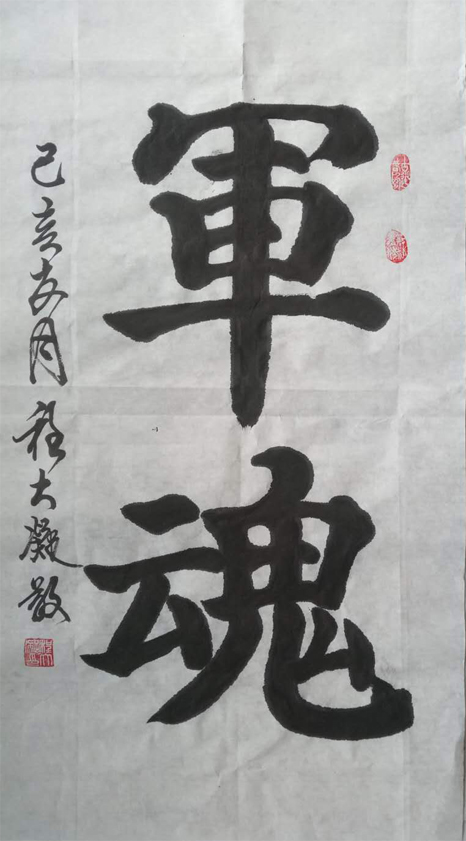 軍魂
己亥友月程大凝敬